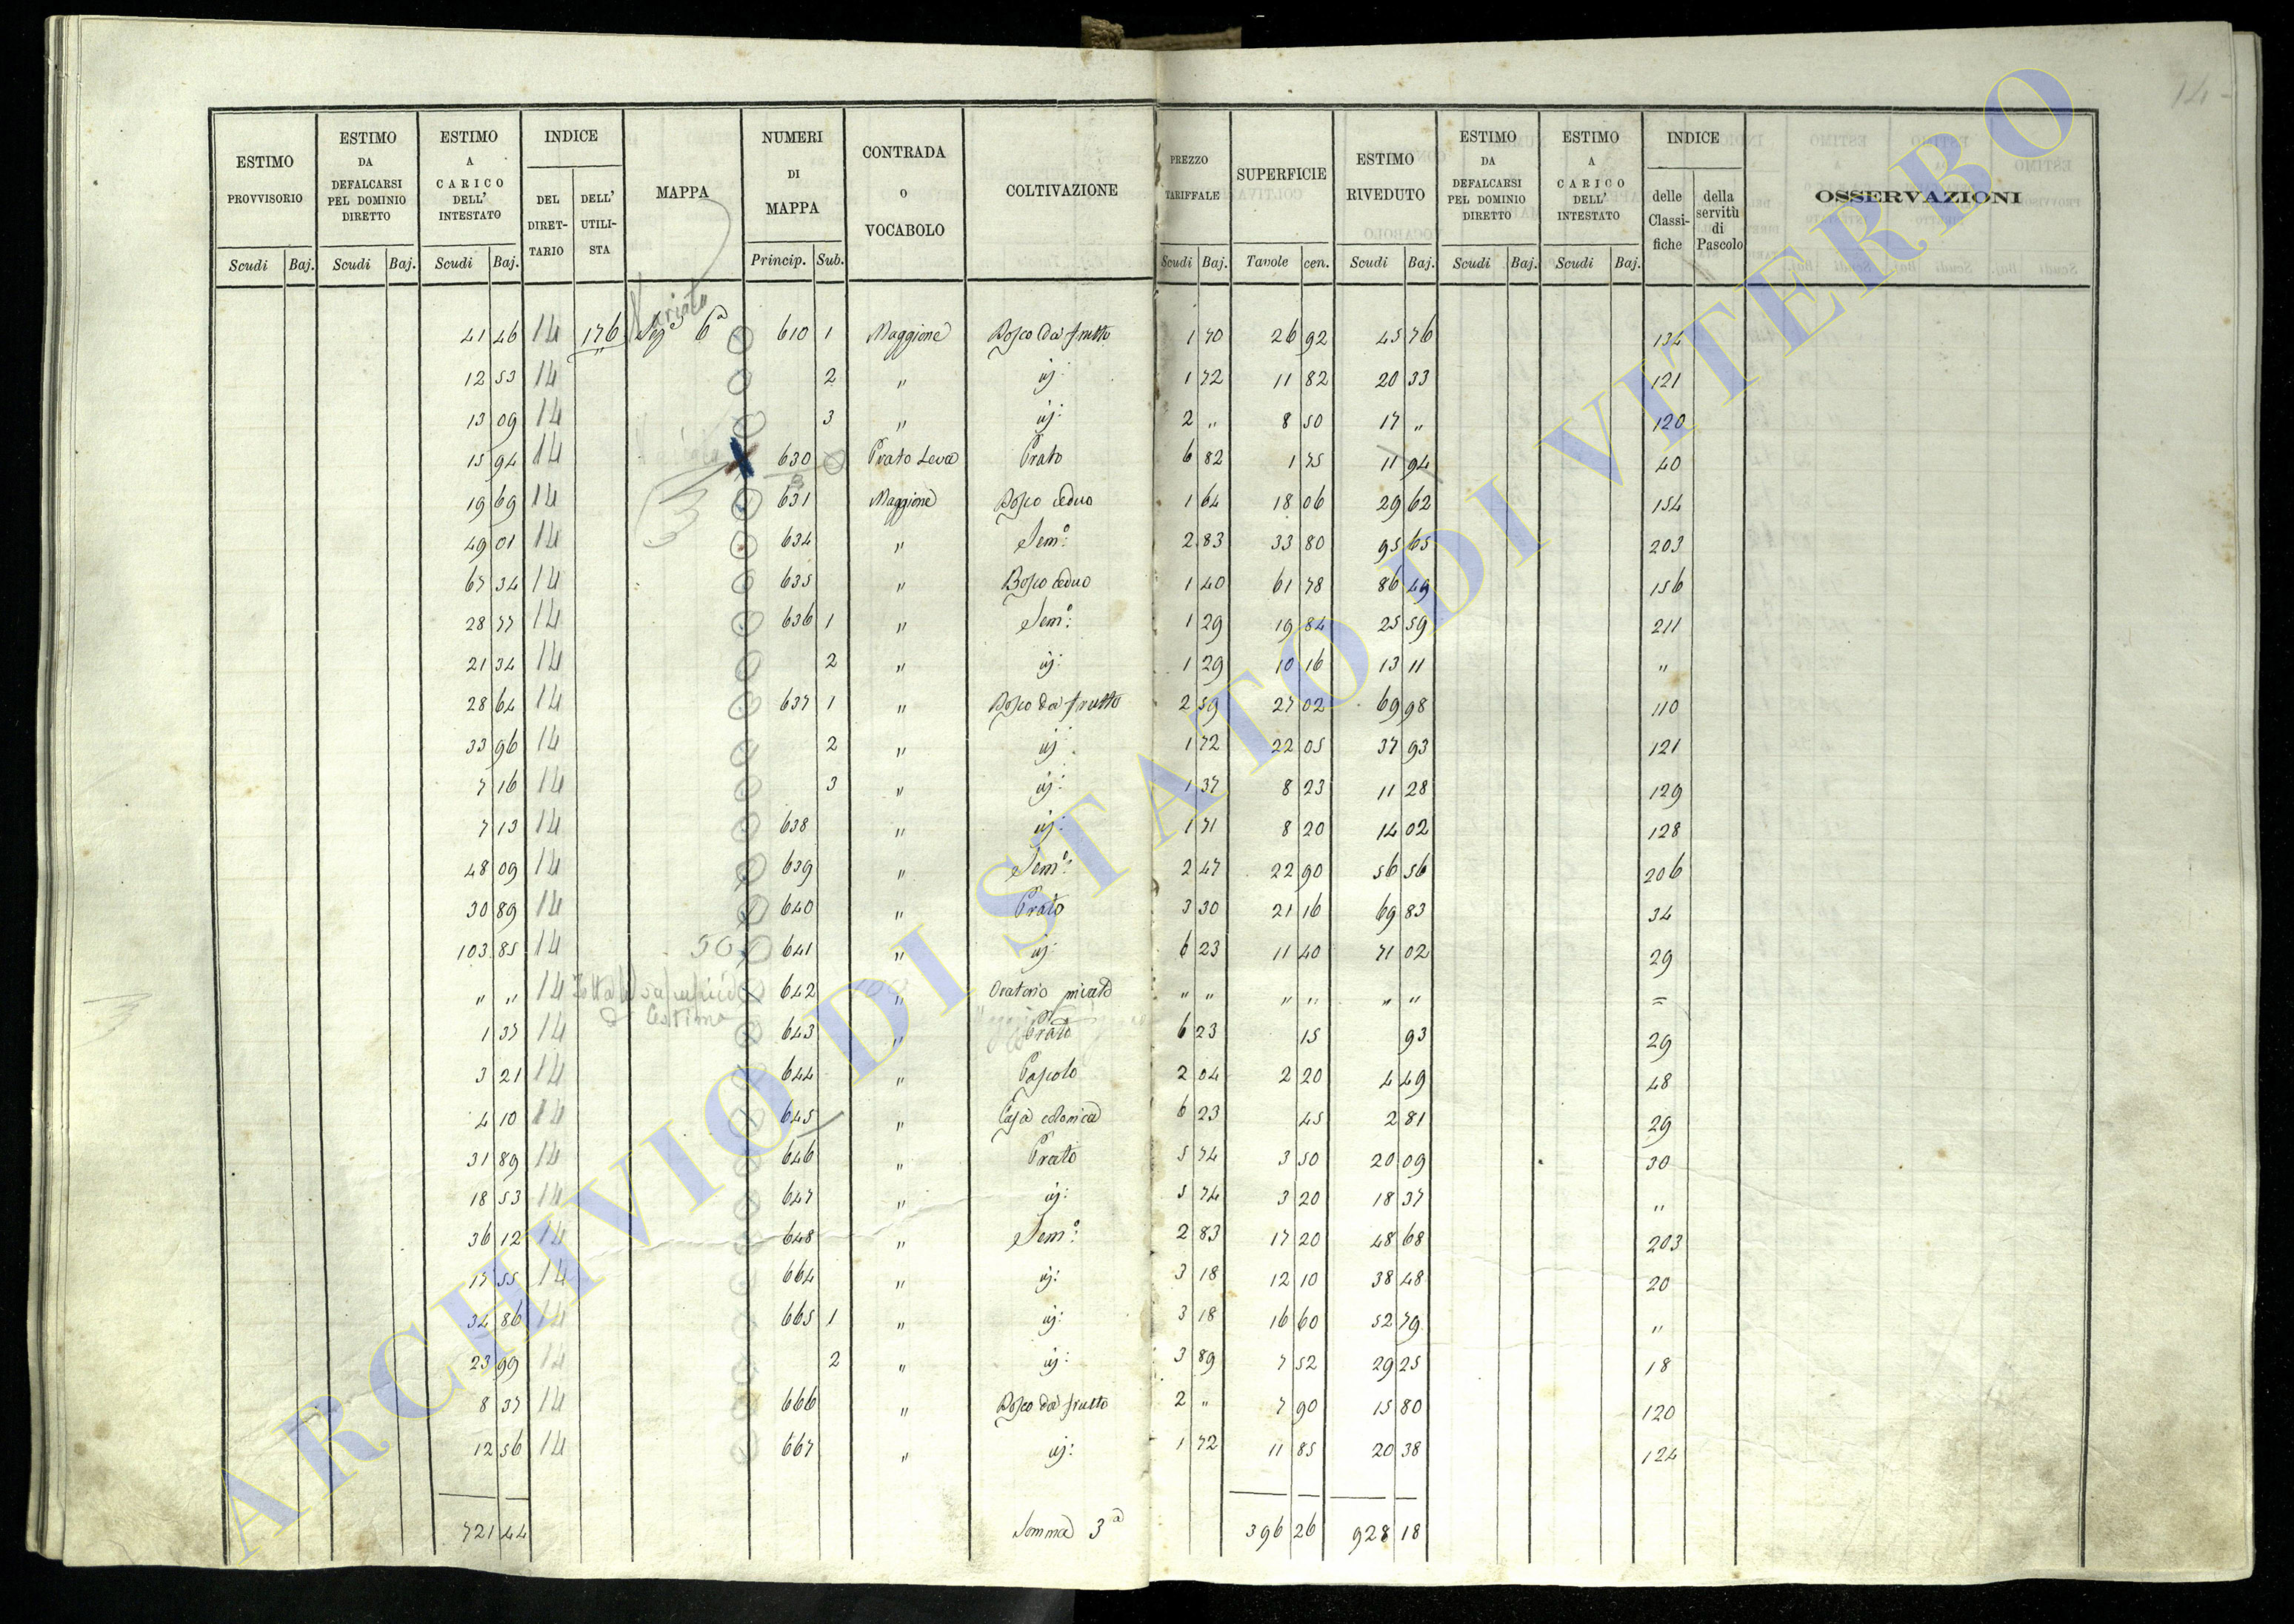 14
ESTIMO PROVVISORIO | ESTIMO DA DEFALCARSI PEL DOMINIO DIRETTO | ESTIMO A CARICO DELL' INTESTATO | INDICE | MAPPA | NUMERI DI MAPPA | CONTRADA O VOCABOLO | COLTIVAZIONE | PREZZO TARIFFALE | SUPERFICIE | ESTIMO RIVEDUTO | ESTIMO DA DEFALCARSI PEL DOMINIO DIRETTO | ESTIMO A CARICO DELL' INTESTATO | INDICE | OSSERVAZIONI
DEL DIRET-TARIO | DELL' UTILI-STA | delle Classi-fiche | della servitù di Pascolo
Scudi | Baj. | Scudi | Baj. | Scudi | Baj. | Princip. | Sub. | Scudi | Baj. | Tavole | cen. | Scudi | Baj. | Scudi | Baj. | Scudi | Baj.
Variato
41 46 14 176 Sez 6ª 610 1 Maggione Bosco da frutto 1 70 26 92 45 76 134
12 53 14 2 " id: 1 72 11 82 20 33 121
13 09 14 3 " id: 2 " 8 50 17 " 120
15 94 14 630 Prato Prato 6 82 1 75 11 94 40
19 69 14 631 Maggione Bosco ceduo 1 64 18 06 29 62 154
49 01 14 634 " Sem.o 2 83 33 80 95 65 203
67 34 14 635 " Bosco ceduo 1 40 61 78 86 49 156
28 77 14 636 1 " Sem.o 1 29 19 84 25 59 211
21 34 14 2 " id: 1 29 10 16 13 11 "
28 64 14 637 1 " Bosco da frutto 2 59 27 02 69 98 110
33 96 14 2 " id: 1 72 22 05 37 93 121
7 16 14 3 " id: 1 37 8 23 11 28 129
7 13 14 638 " id: 1 71 8 20 14 02 128
48 09 14 639 " Sem.o 2 47 22 90 56 56 206
30 89 14 640 " Prato 3 30 21 16 69 83 34
103 85 14 50 641 " id: 6 23 11 40 71 02 29
" " 14 642 " Oratorio privato " " " " " " =
1 37 14 643 " Prato 6 23 15 93 29
3 21 14 644 " Pascolo 2 04 2 20 4 49 48
4 10 14 645 " Casa colonica 6 23 45 2 81 29
31 89 14 646 " Prato 5 74 3 50 20 09 30
18 53 14 647 " id: 5 74 3 20 18 37 "
36 12 14 648 " Sem.o 2 83 17 20 48 68 203
17 55 14 664 " id: 3 18 12 10 38 48 20
34 86 14 665 1 " id: 3 18 16 60 52 79 "
23 99 14 2 " id: 3 89 7 52 29 25 18
8 37 14 666 " Bosco da frutto 2 " 7 90 15 80 120
12 56 14 667 " id: 1 72 11 85 20 38 124
721 44 Somma 3ª 396 26 928 18
ARCHIVIO DI STATO DI VITERBO